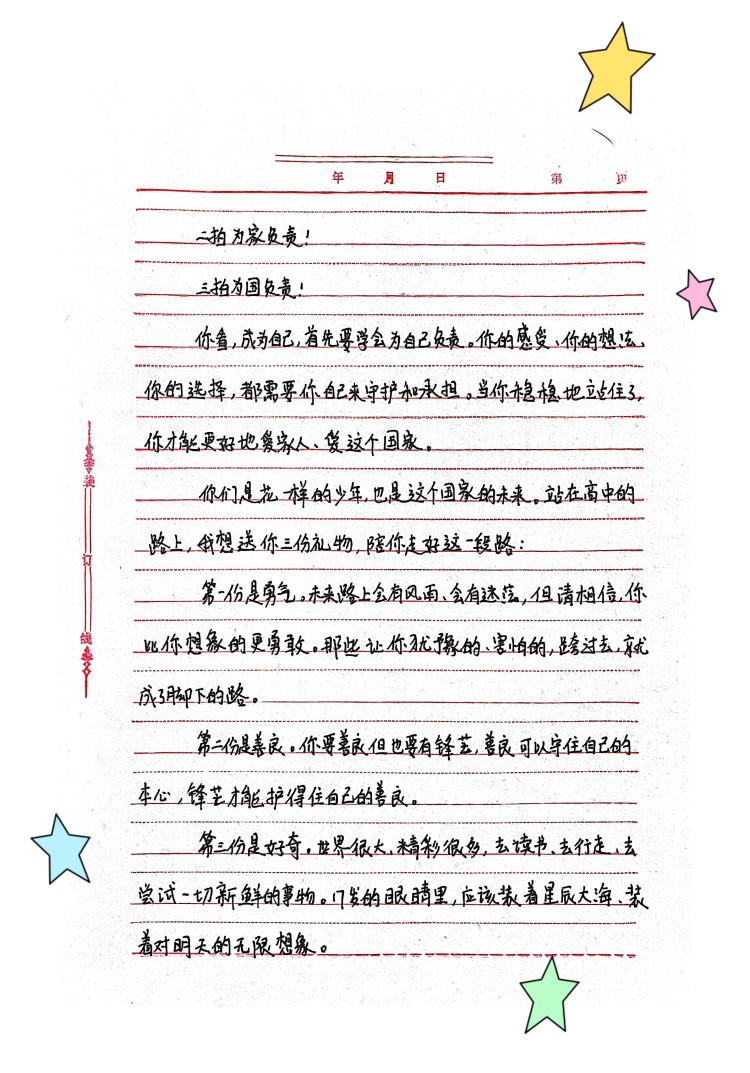 年 月 日 第 页
二拍为家负责!
三拍为国负责!
你看,成为自己,首先要学会为自己负责。你的感受、你的想法、
你的选择,都需要你自己来守护和承担。当你稳稳地立站住了,
你才能更好地爱家人、爱这个国家。
你们是花一样的少年,也是这个国家的未来。站在高中的
路上,我想送你三份礼物,陪你走好这一段路:
第一份是勇气。未来路上会有风雨、会有迷茫,但请相信,你
比你想象的更勇敢。那些让你犹豫的、害怕的,跨过去,就
成了脚下的路。
第二份是善良。你要善良但也要有锋芒,善良可以守住自己的
本心,锋芒才能护得住自己的善良。
第三份是好奇。世界很大、精彩很多,去读书、去行走、去
尝试一切新鲜的事物。17岁的眼睛里,应该装着星辰大海、装
着对明天的无限想象。
装
订
线